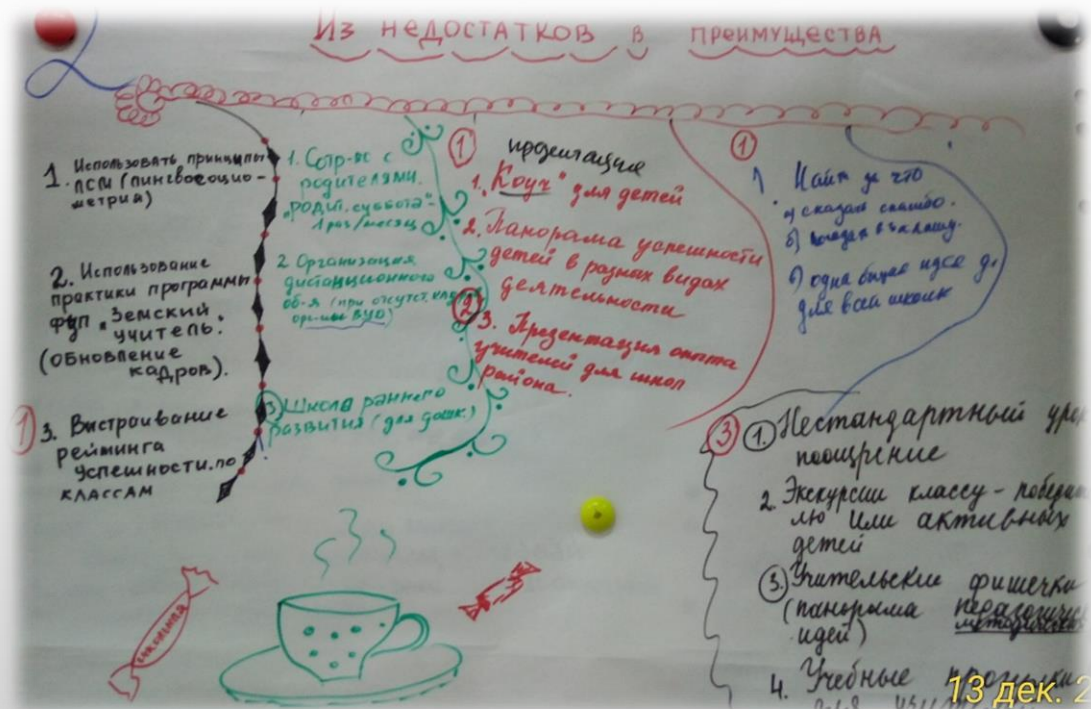 Из недостатков в преимущества
1. Использовать принципы
ЛСМ (лингвосоцио-
метрии)
2. Использование
практики программы
ФЦП „Земский
учитель".
(обновление
кадров).
1
3. Выстраивание
рейтинга
успешности по
классам
1. Сотр-во с
родителями.
„Родит. суббота"-
1 раз/месяц
2 Организация
дистанционного
об-я (при отсутст.
3 Школа раннего
развития (для дошк.)
1
презентация
1. „Коуч" для детей
2. Панорама успешности
детей в разных видах
деятельности
2
3. Презентация опыта
учителей для школ
района.
1
Найти за что
а) сказать спасибо.
б)
в) одна общая идея
для всей школы
3
1. Нестандартный
поощрение
2. Экскурсии классу - победи
лю или активных
детей
3. Учительские фишечки
(панорама
идей)
4. Учебные
шоколад
13 дек. 2